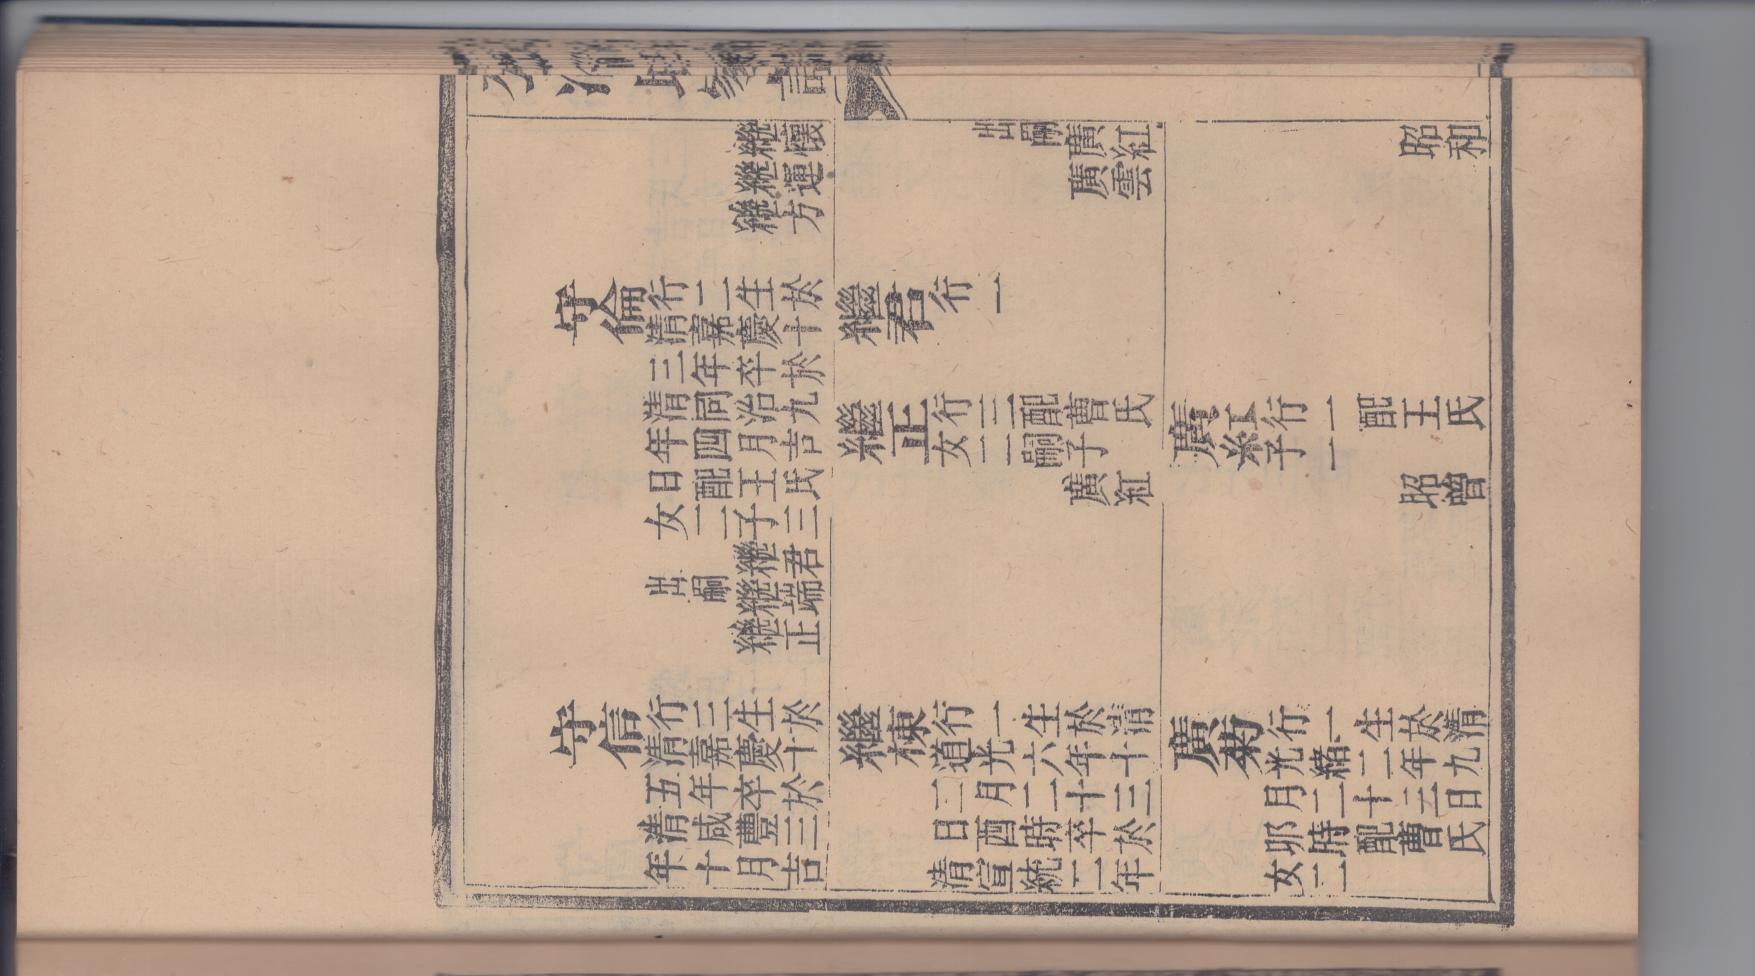 繼懷
繼運
繼方
出嗣 廣紅
廣雲
昭和
守倫
行二生於
清嘉慶十
三年卒於
清同治九
年四月吉
日配王氏
女一子三
繼君
出嗣 繼端
繼正
繼君
行一
繼正
行三配曹氏
女二嗣子
廣紅
廣紅
行二 配王氏
子一
昭曾
守信
行三生於
清嘉慶十
五年卒於
清咸豐三
年十月吉
繼棟
行一生於清
道光六年十
二月二十三
日酉時卒於
清宣統二年
廣菊
行一生於清
光緒二年九
月二十三日
卯時配曹氏
女二